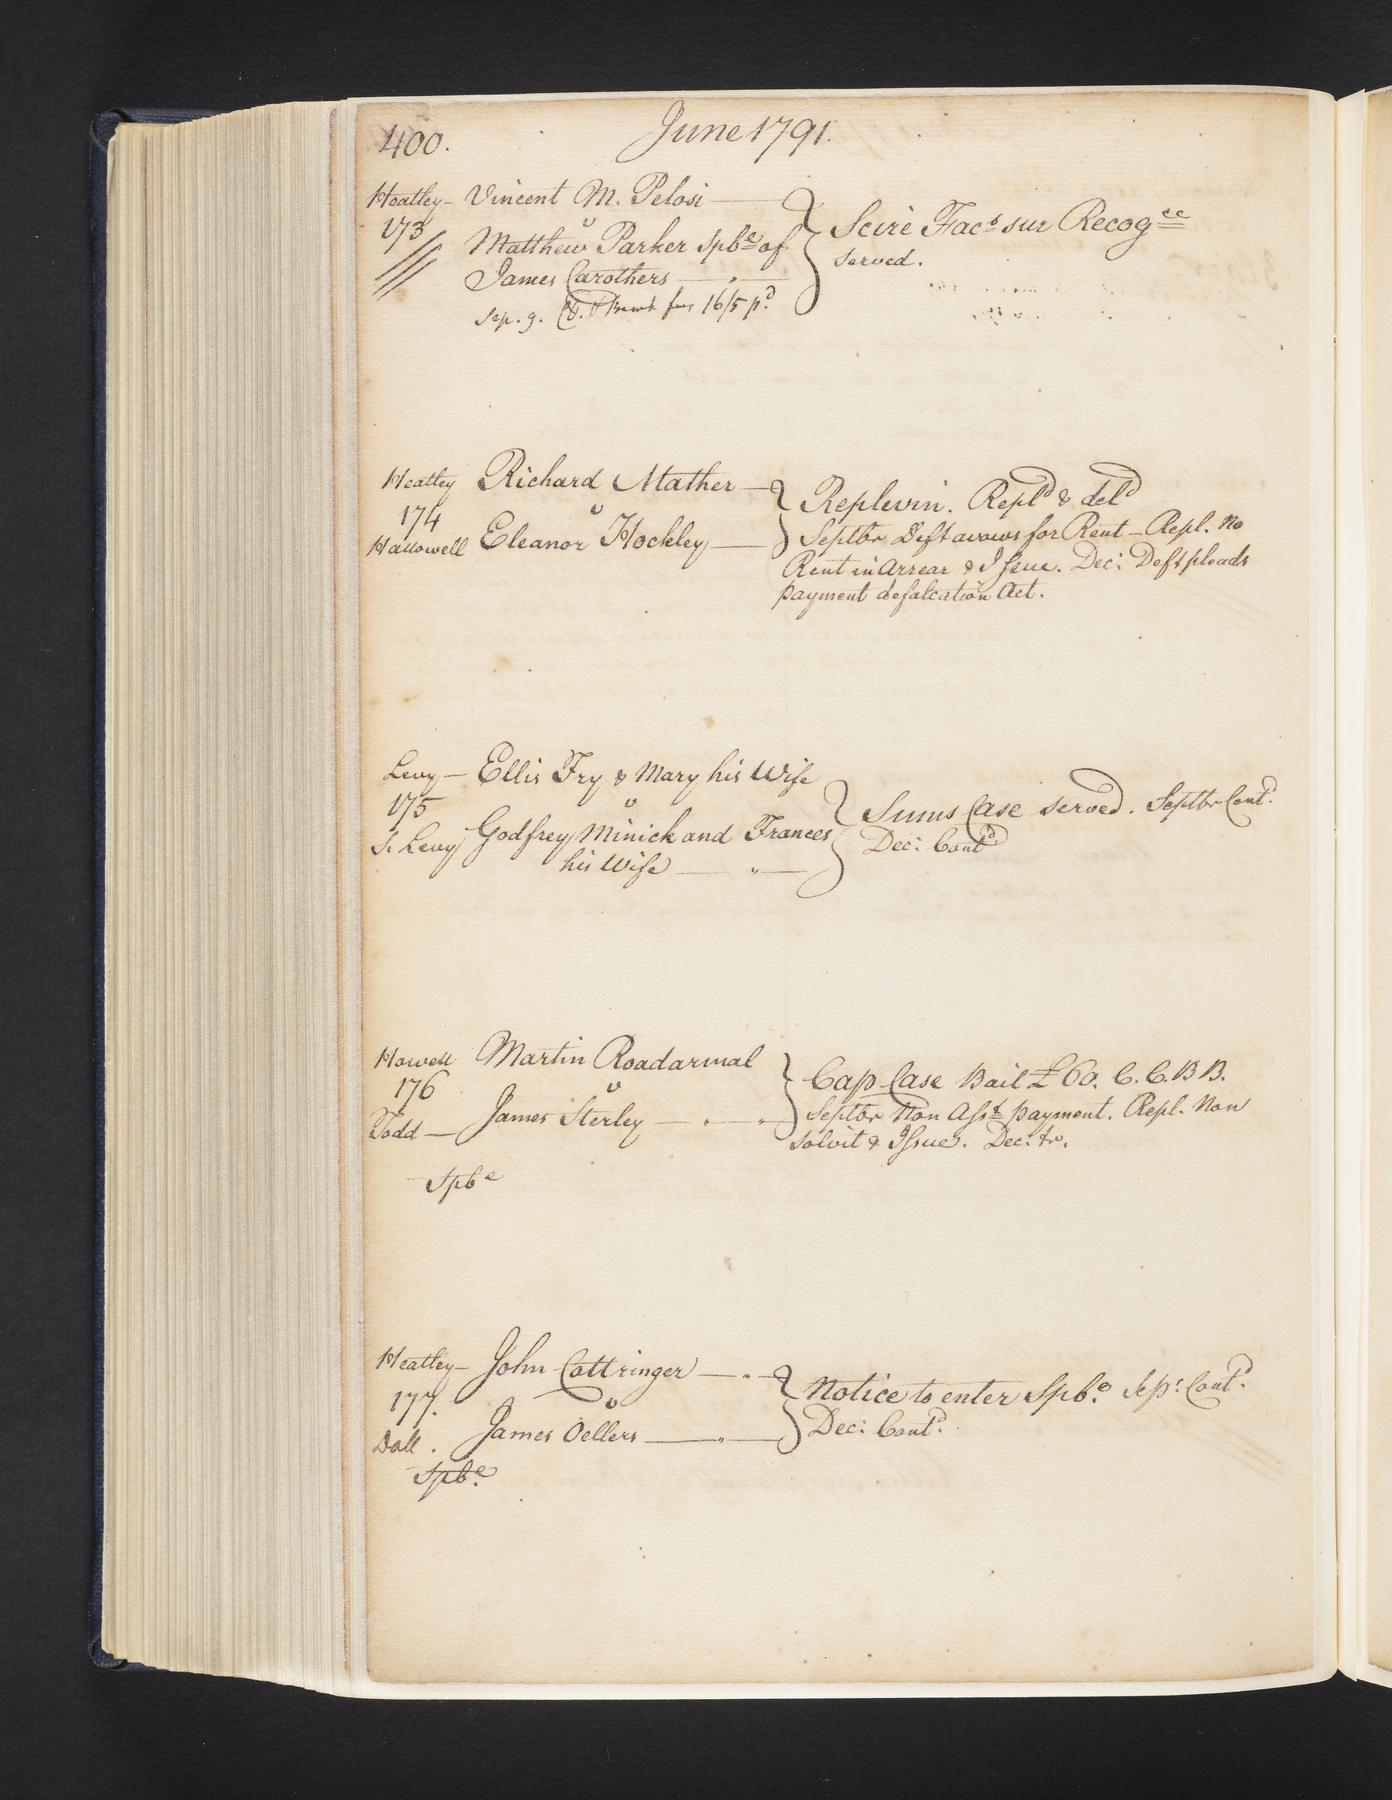 400. June 1791.
Heatley – Vincent M. Pelosi
173 v
Matthew Parker Spbe of
James Carothers
Sep. 9. fees 16/5 pd
Scire Facs sur Recogce
served.
Heatley Richard Mather
174 v
Hallowell Eleanor Hockley
Replevin. Repld & deld
Septbr Deft avows for Rent – Repl. No
Rent in Arrear & Issue. Dec: Deft pleads
payment defalcation Act.
Levy – Ellis Fry & Mary his Wife
175 v
S. Levy Godfrey Minick and Frances
his Wife
Sums Case served. Septbr Contd.
Dec: Contd
Howell Martin Roadarmal
176 v
Todd – James Sterley
Spbe
Cap Case Bail £60. C. C. B B.
Septbr Non Asst payment. Repl. Non
solvit & Issue. Dec: &c.
Heatley – John Cottringer
177. v
Dall. James Oellers
Spbe.
Notice to enter Spbe. Sepr. Contd.
Dec: Contd.